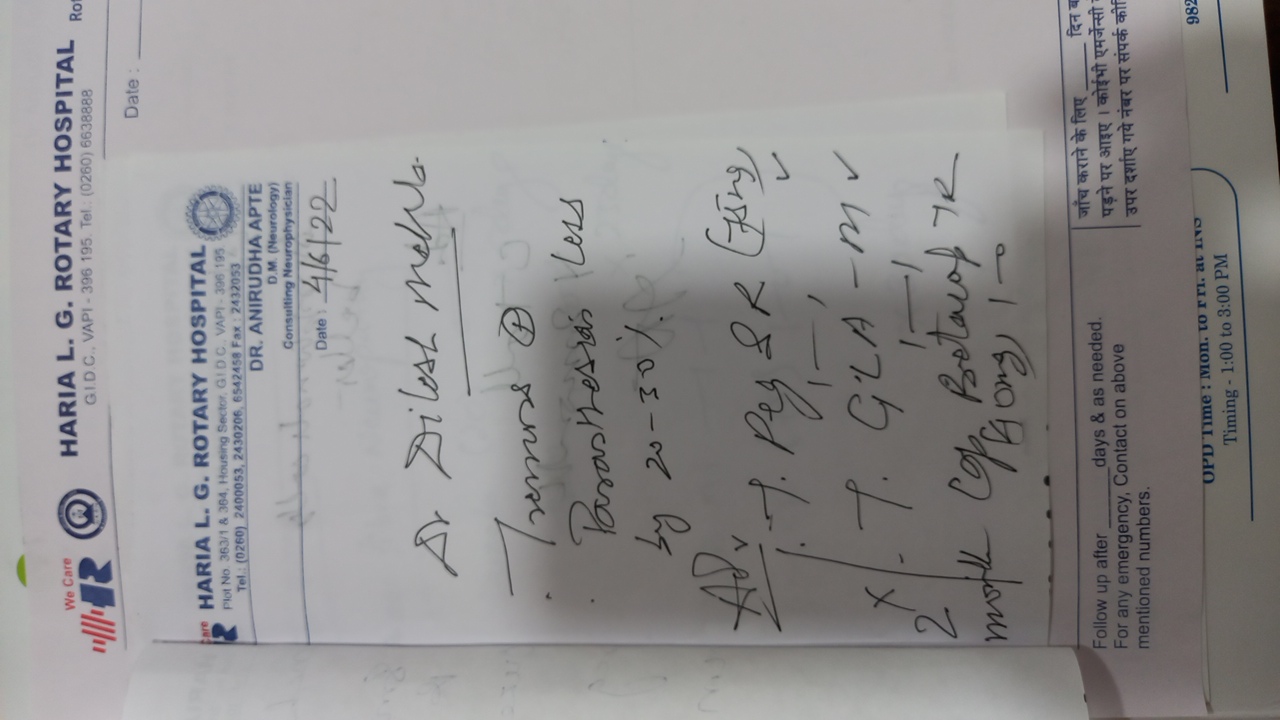 We Care
HARIA L. G. ROTARY HOSPITAL
G.I.D.C., VAPI - 396 195. Tel.: (0260) 6638888
Rot
Date :
Care
HARIA L. G. ROTARY HOSPITAL
Plot No. 363/1 & 364, Housing Sector, G.I.D.C., VAPI - 396 195
Tel.: (0260) 2400053, 2430206, 6542458 Fax : 2432053
DR. ANIRUDHA APTE
D.M. (Neurology)
Consulting Neurophysician
Date : 4/6/22
Dr Dilesh Mehta
Tremors ⊕
Parasthesias less
by 20-30%.
Adv
. T. Peg SR (75mg) ✓
1—1
- T. GLA - M ✓
1—1
X
2
month
Cap Betacap TR
(40mg) 1-0
Follow up after ______days & as needed.
For any emergency, Contact on above
mentioned numbers.
जाँच कराने के लिए ______ दिन ब
पड़ने पर आइए । कोईभी एमर्जेन्सी
उपर दर्शाए गये नंबर पर संपर्क की
OPD Time : Mon. to Fri. at INS
Timing - 1:00 to 3:00 PM
982